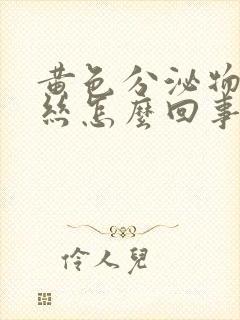 黃色分泌物
絲怎麼回事
伶人兒